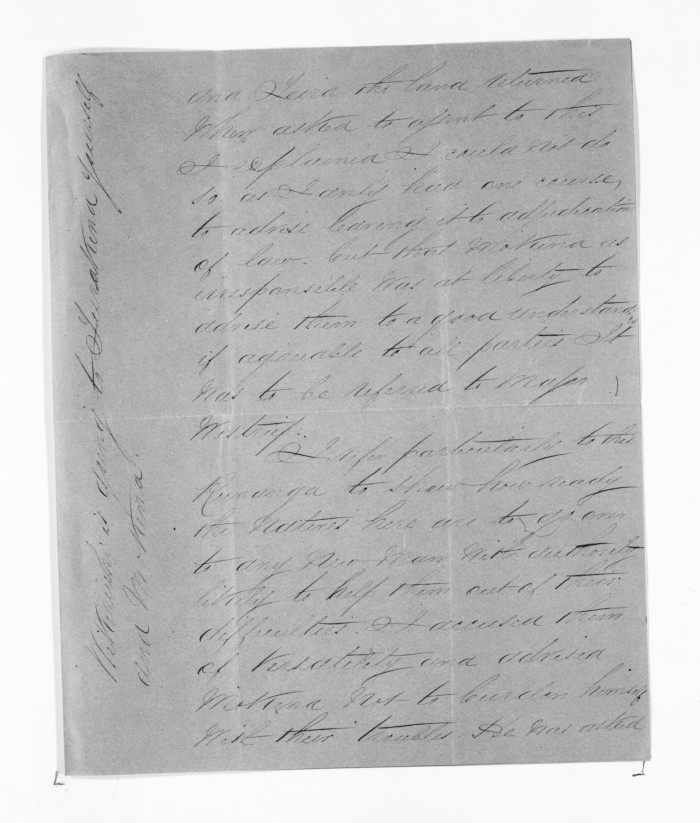 and the land returned
When asked to assent to this
I explained I could not do
so as I only had one course,
to advise leaving it to adjudication
of law. but that Mokena as
irresponsible was at liberty to
advise them to a good understandg
if agreeable to all parties It
was to be referred to Major
Westrup.
I refer particularly to this
Runanga to show how ready
the Natives here are to go over
to any New Man with authority
likely to help them out of their
difficulties. I accused them
of versatility and advised
Mokena not to burden himself
with their troubles. He was asked
is going to yourself
and Mokena.